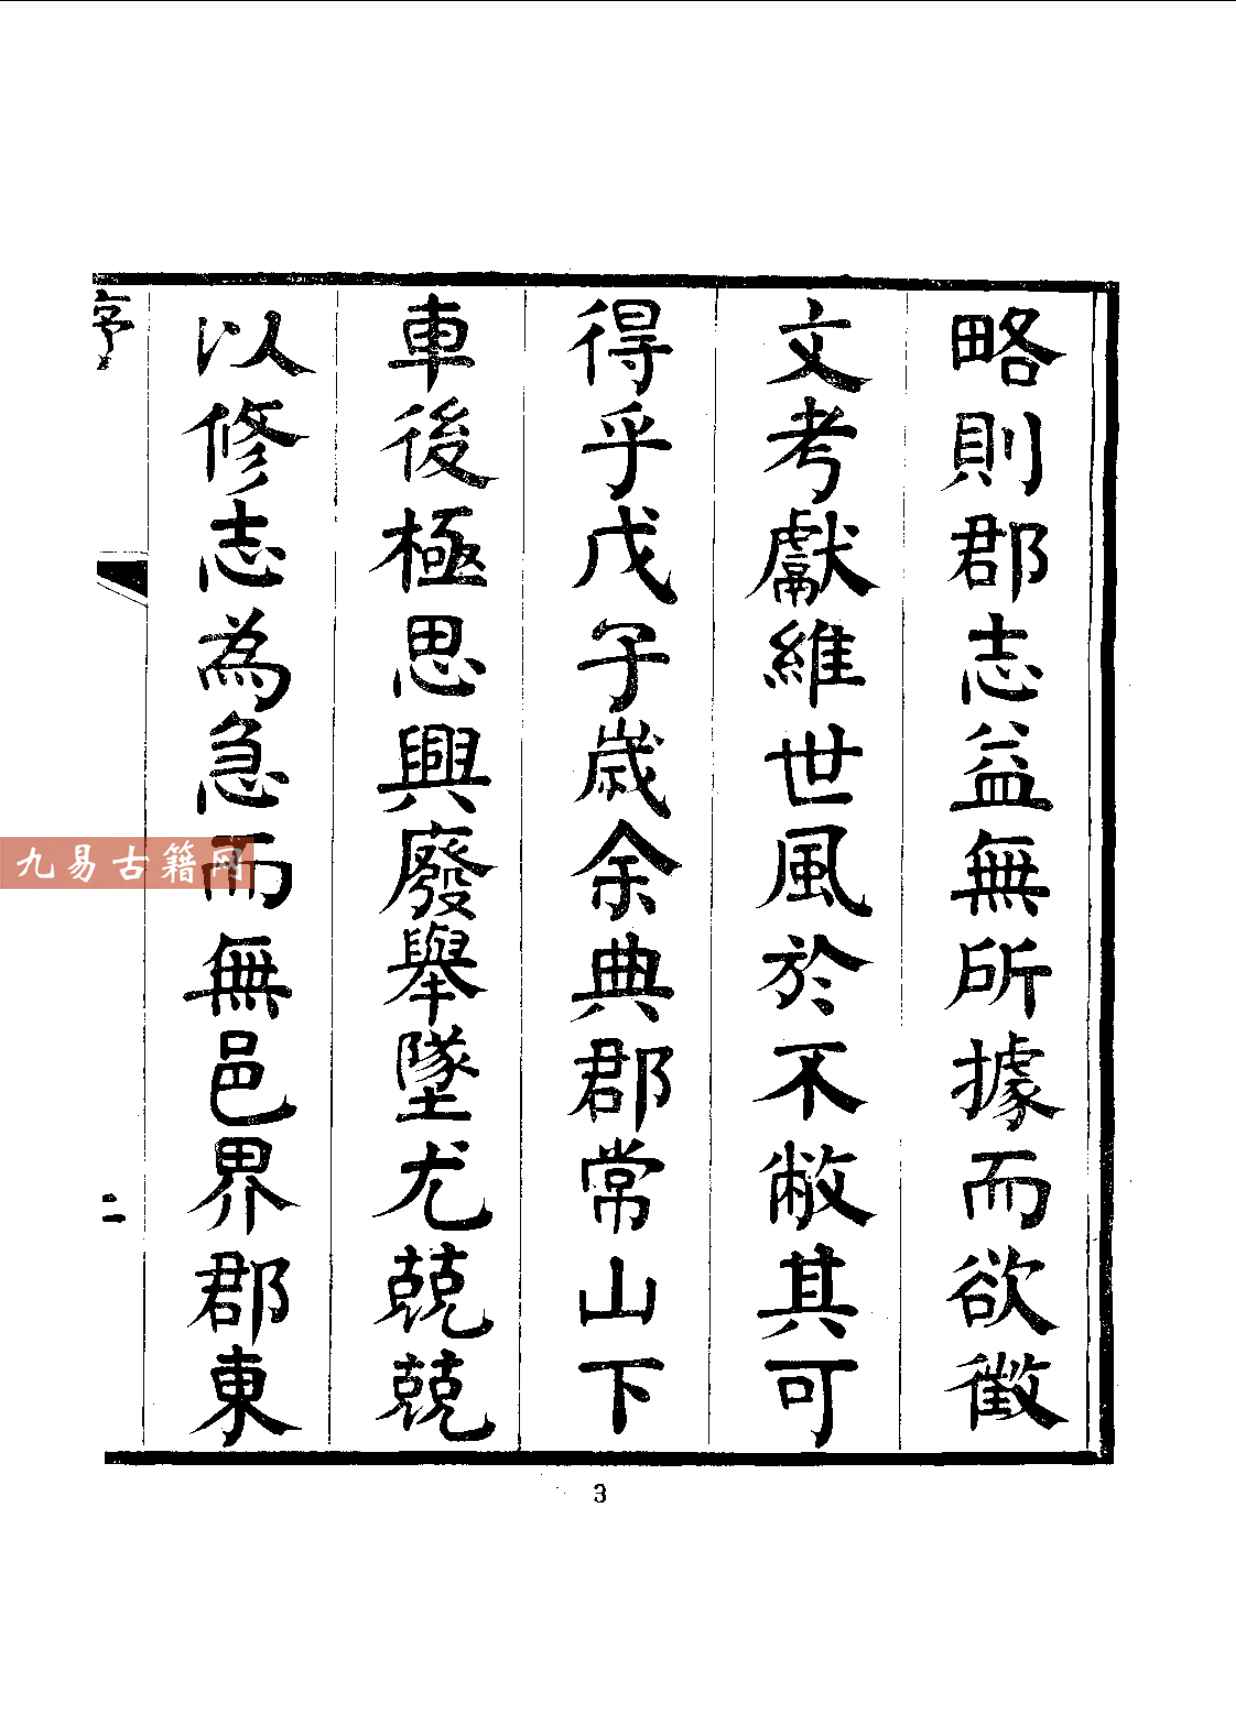 略則郡志益無所據而欲徵
文考獻維世風於不敝其可
得乎戊子歲余典郡常山下
車後極思興廢舉墜尤兢兢
以修志為急而無邑界郡東
序
二
3
九易古籍网